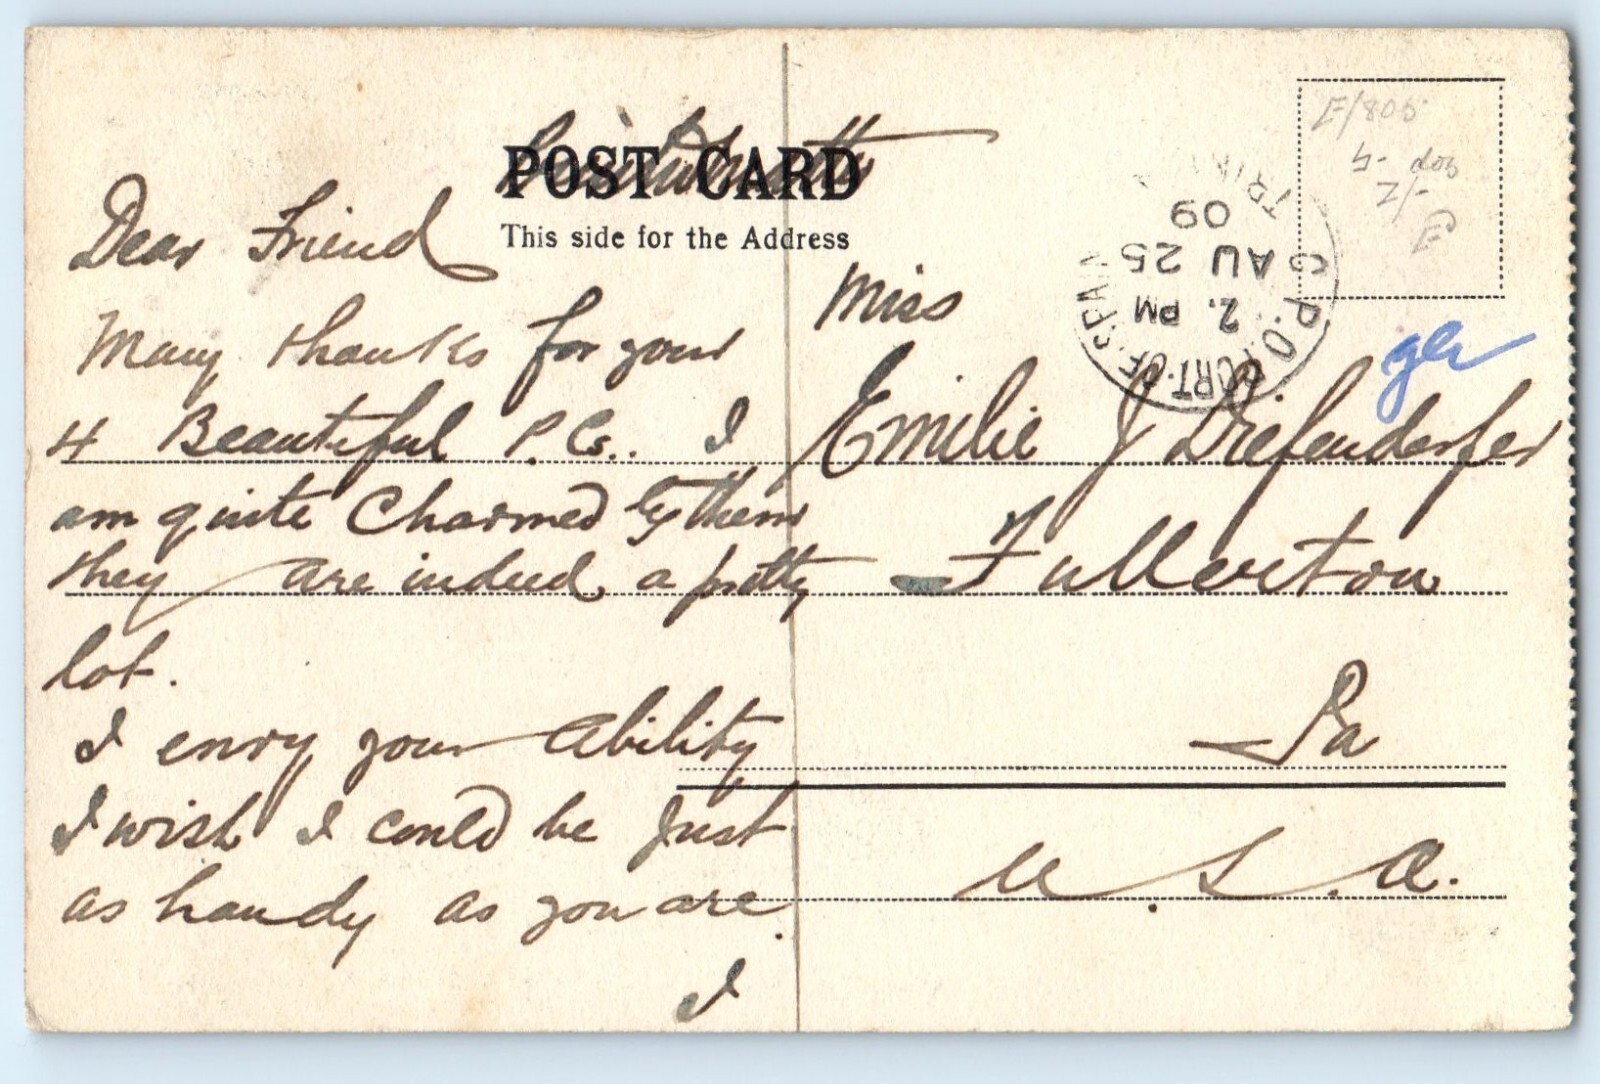 POST CARD
This side for the Address
Dear Friend
Many thanks for your
4 Beautiful P.Cs.. I
am quite Charmed by them
they are indeed a pretty
lot.
I envy your ability
I wish I could be just
as handy as you are.
I
G.P.O. PORT-OF-SPAIN
2. PM
AU 25
09
TRIN
E/805
Miss
Emilie J Diefenderfer
Fullerton
Pa
U.S.A.